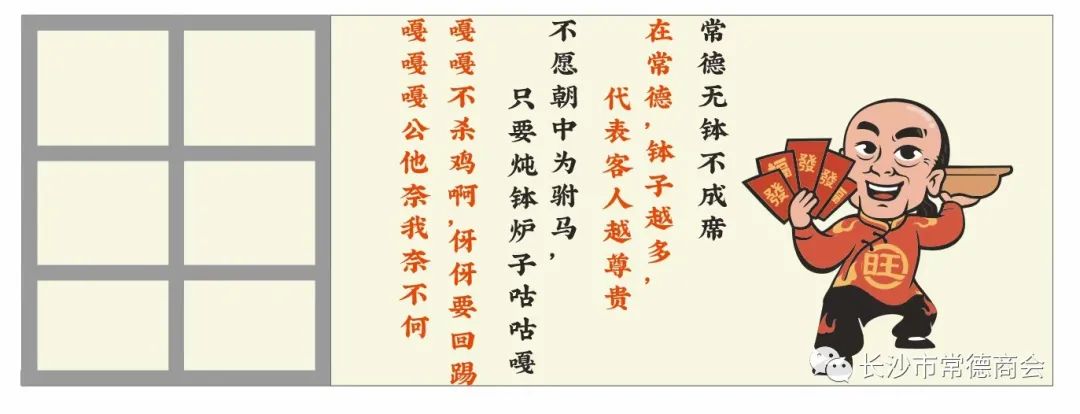 常德无钵不成席
在常德，钵子越多，
代表客人越尊贵
不愿朝中为驸马，
只要炖钵炉子咕咕嘎
嘎嘎不杀鸡啊，伢伢要回踢
嘎嘎嘎公他奈我奈不何
福
發
發
發
旺
长沙市常德商会